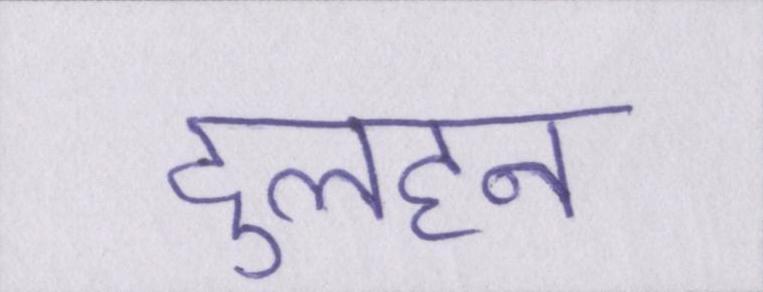 दुलहन